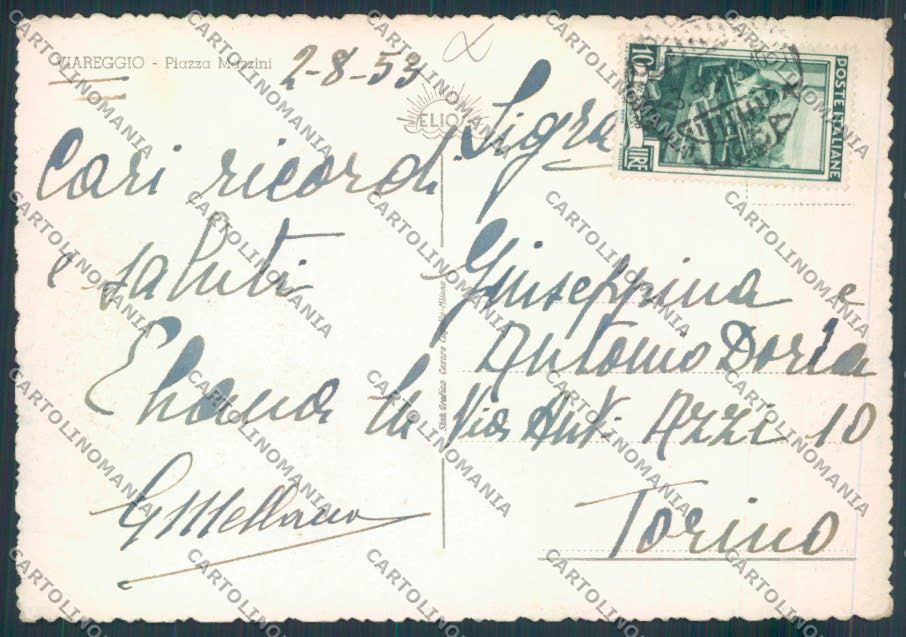 VIAREGGIO - Piazza Mazzini
2-8-53
Cari ricordi
e saluti
G Mellano
ELIO
Sigra
Giuseppina e
Antonio Doria
Via Ant. Azzi 10
Torino
POSTE ITALIANE
10
LIRE
Stab. Grafico Cesare
Milano
CARTOLINOMANIA